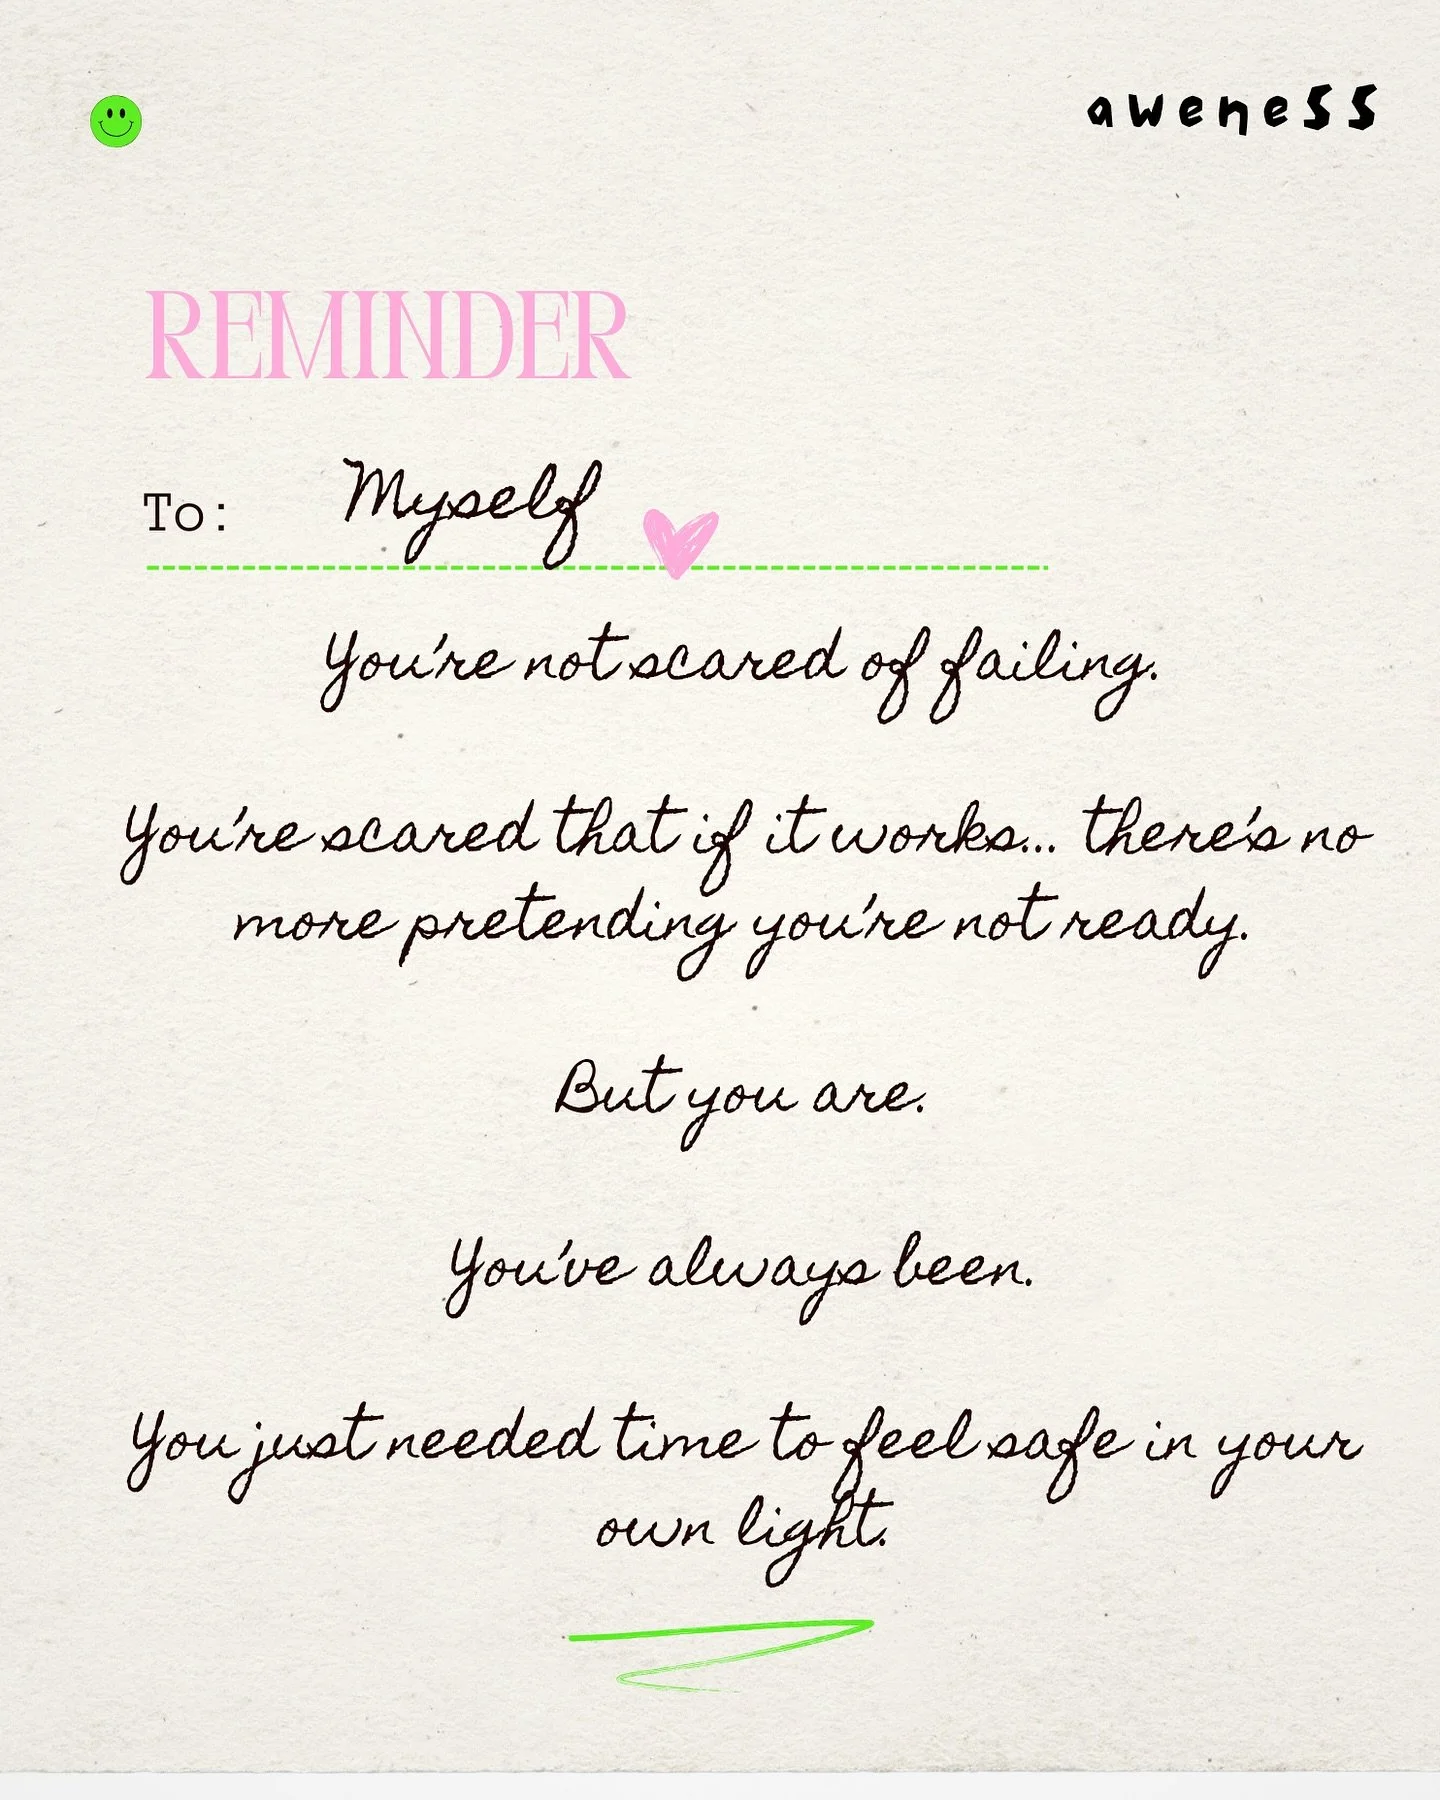 aweneSS
REMINDER
To: Myself
You're not scared of failing.
You're scared that if it works... there's no
more pretending you're not ready.
But you are.
You've always been.
You just needed time to feel safe in your
own light.